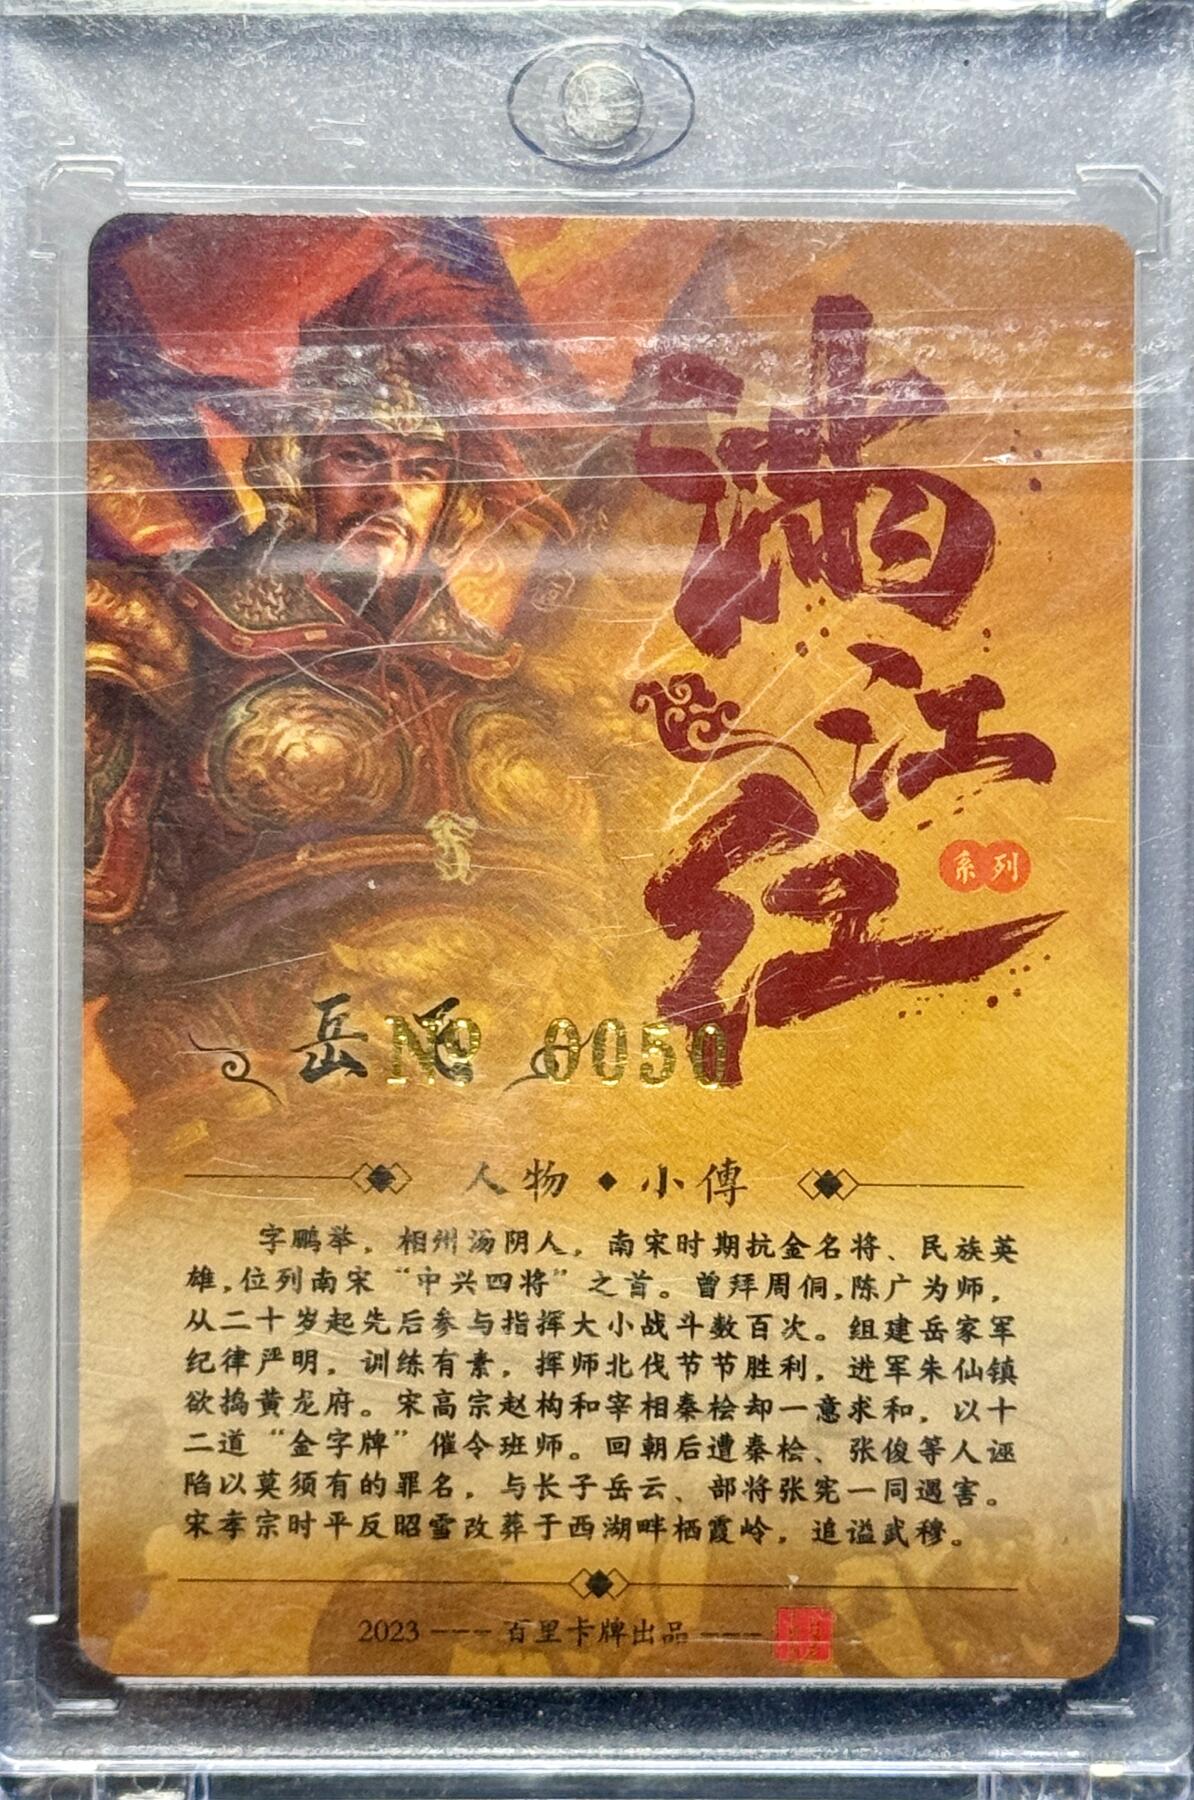 满江红
系列
岳飞
No 0050
人物·小傳
字鹏举，相州汤阴人，南宋时期抗金名将、民族英
雄,位列南宋“中兴四将”之首。曾拜周侗,陈广为师，
从二十岁起先后参与指挥大小战斗数百次。组建岳家军
纪律严明，训练有素，挥师北伐节节胜利，进军朱仙镇
欲捣黄龙府。宋高宗赵构和宰相秦桧却一意求和，以十
二道“金字牌”催令班师。回朝后遭秦桧、张俊等人诬
陷以莫须有的罪名，与长子岳云、部将张宪一同遇害。
宋孝宗时平反昭雪改葬于西湖畔栖霞岭，追谥武穆。
2023 --- 百里卡牌出品 ---